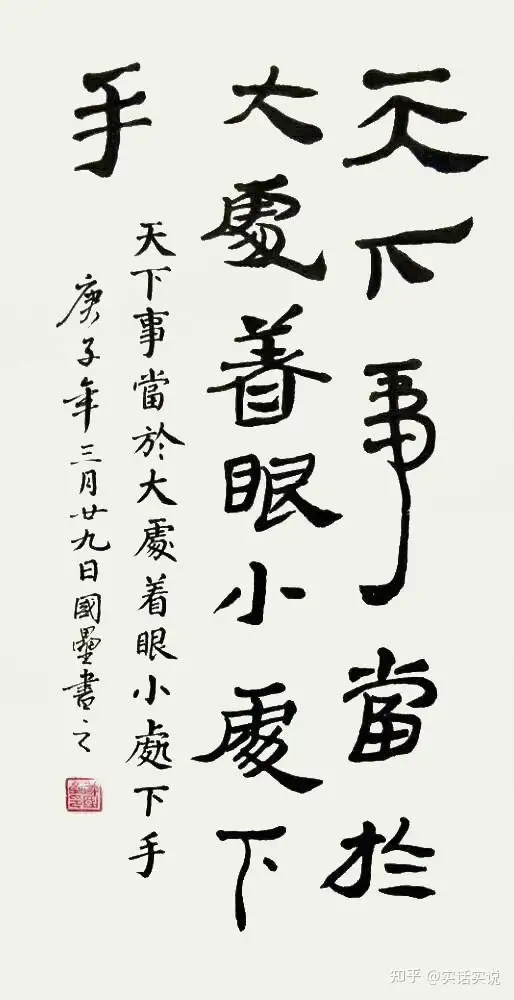 天下事當於
大處着眼小處下
手
天下事當於大處着眼小處下手
庚子年三月廿九日國墨書之
知乎 @实话实说